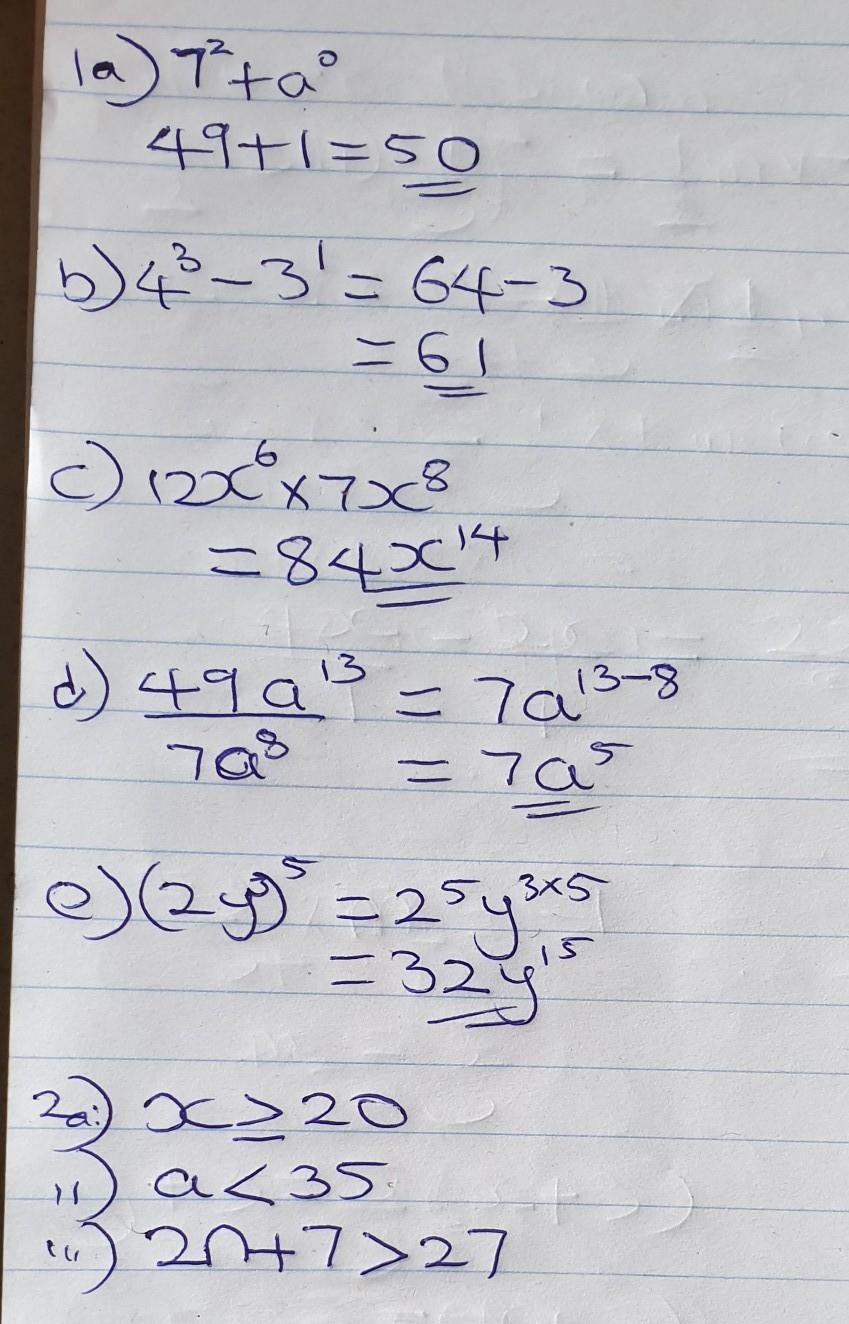 1a) 7² + a⁰
49 + 1 = 50
b) 4³ - 3¹ = 64 - 3
= 61
c) 12x⁶ × 7x⁸
= 84x¹⁴
d) 49a¹³/7a⁸ = 7a¹³⁻⁸
= 7a⁵
e) (2y³)⁵ = 2⁵y³ˣ⁵
= 32y¹⁵
2a i) x ≥ 20
ii) a < 35
iii) 2n + 7 > 27